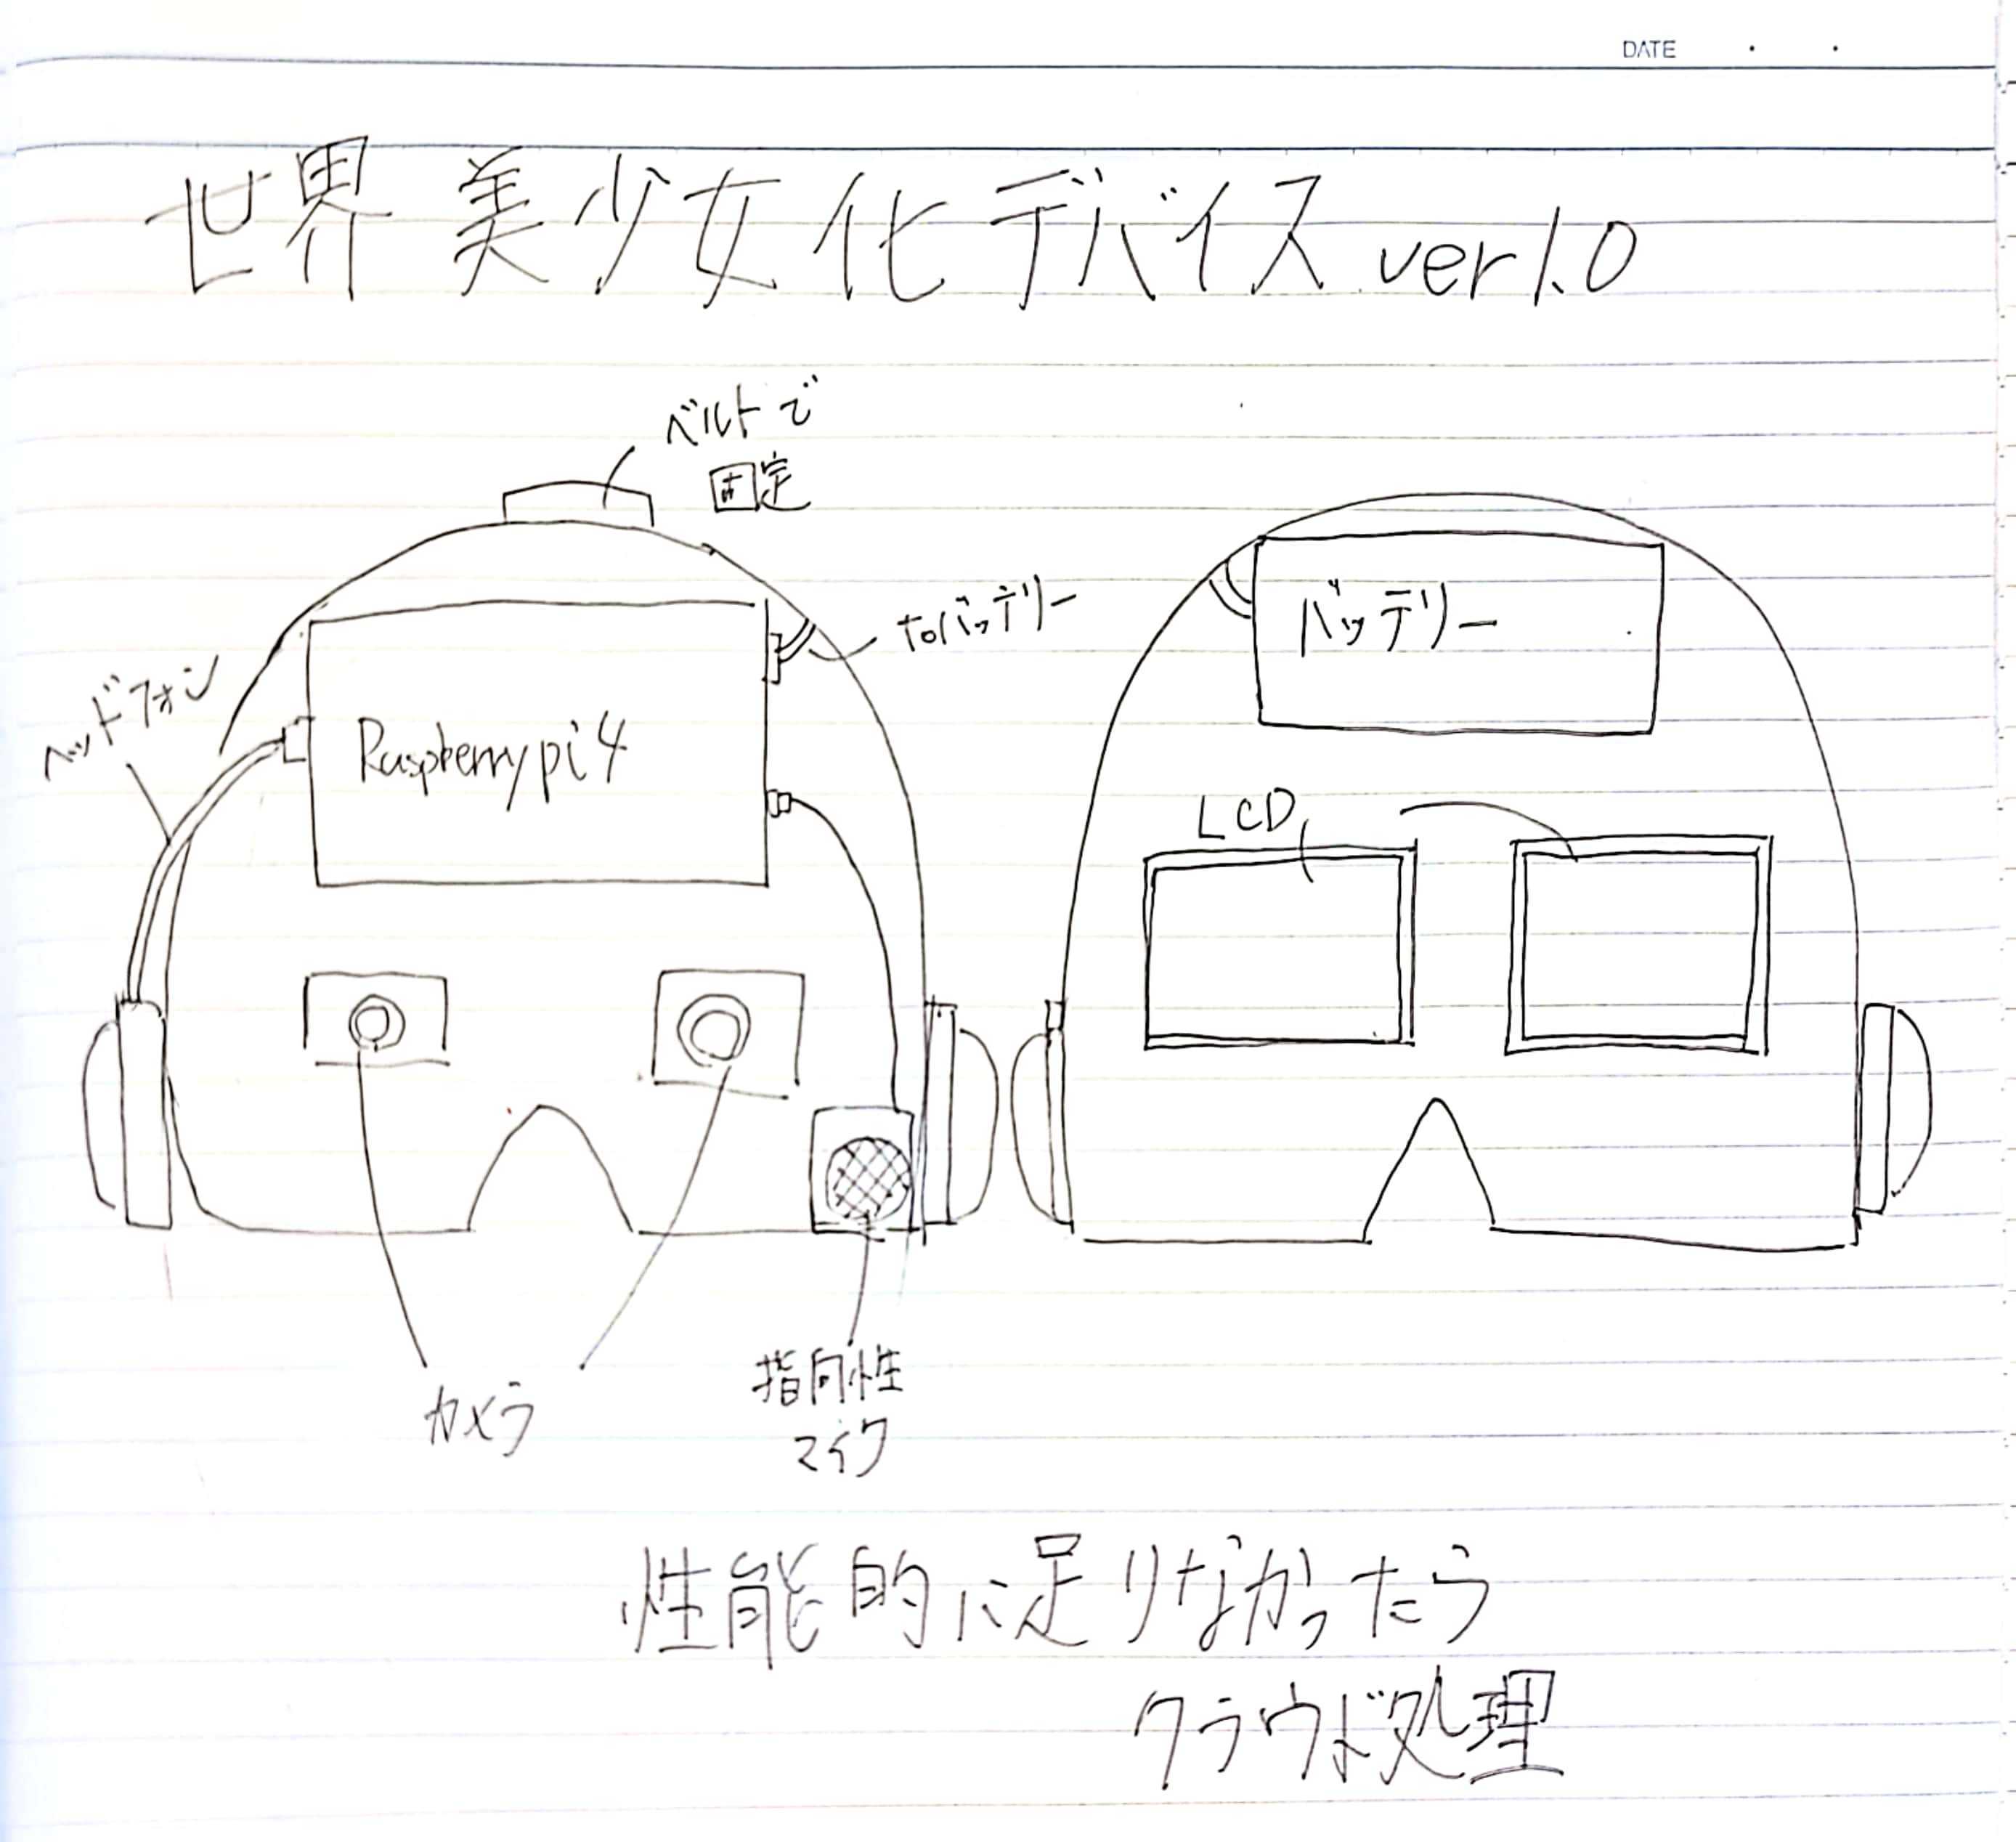 DATE
世界美少女化デバイス ver1.0
ベルトで
固定
toバッテリー
ヘッドフォン
Raspberrypi4
カメラ
指向性
マイク
バッテリー
LCD
性能的に足りなかったら
クラウド処理